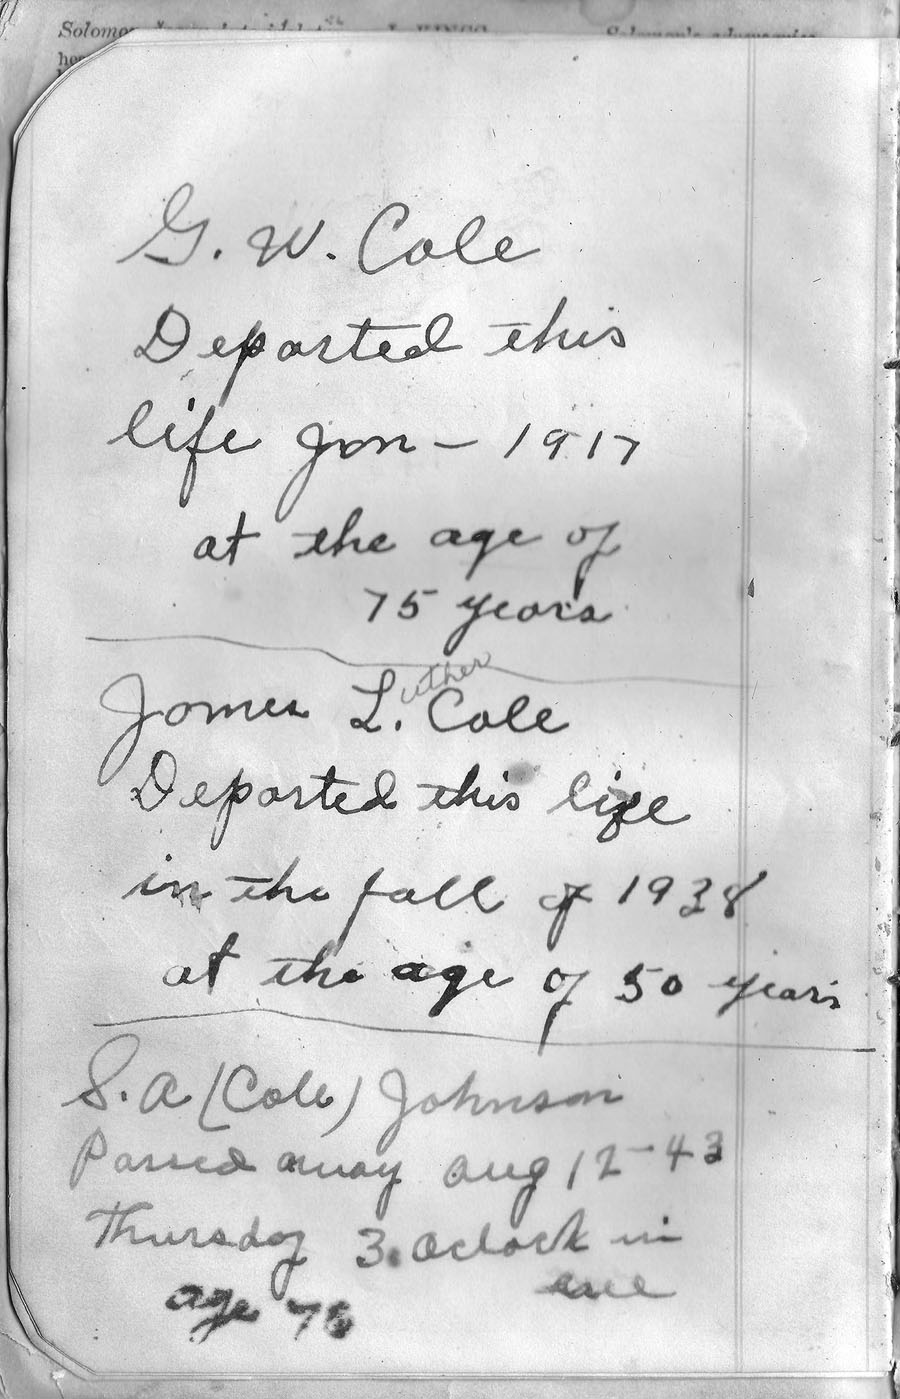 Solomon
I. KINGS
Solomon's adversaries
G. W. Cole
Departed this
life Jan - 1917
at the age of
75 years
James L.uther Cole
Departed this life
in the fall of 1938
at the age of 50 years
S. A (Cole) Johnson
Passed away Aug 12-43
Thursday 3. Oclock in
eve
age 78